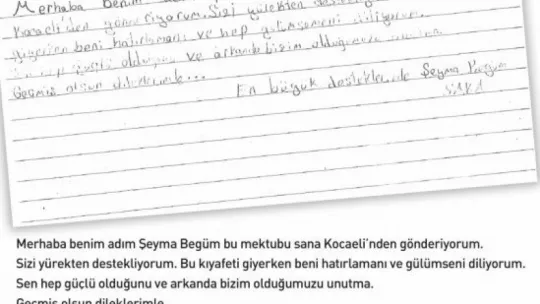 Merhaba benim
Kocaeli'den gönderiyorum. Sizi yürekten
giyerken beni hatırlamanı ve hep gülümsemeni diliyorum.
hep güçlü olduğunu ve arkanda bizim olduğumuzu
Geçmiş olsun dileklerimle...
En büyük destekle Şeyma Begüm
Merhaba benim adım Şeyma Begüm bu mektubu sana Kocaeli'nden gönderiyorum.
Sizi yürekten destekliyorum. Bu kıyafeti giyerken beni hatırlamanı ve gülümseni diliyorum.
Sen hep güçlü olduğunu ve arkanda bizim olduğumuzu unutma.
Geçmiş olsun dileklerimle